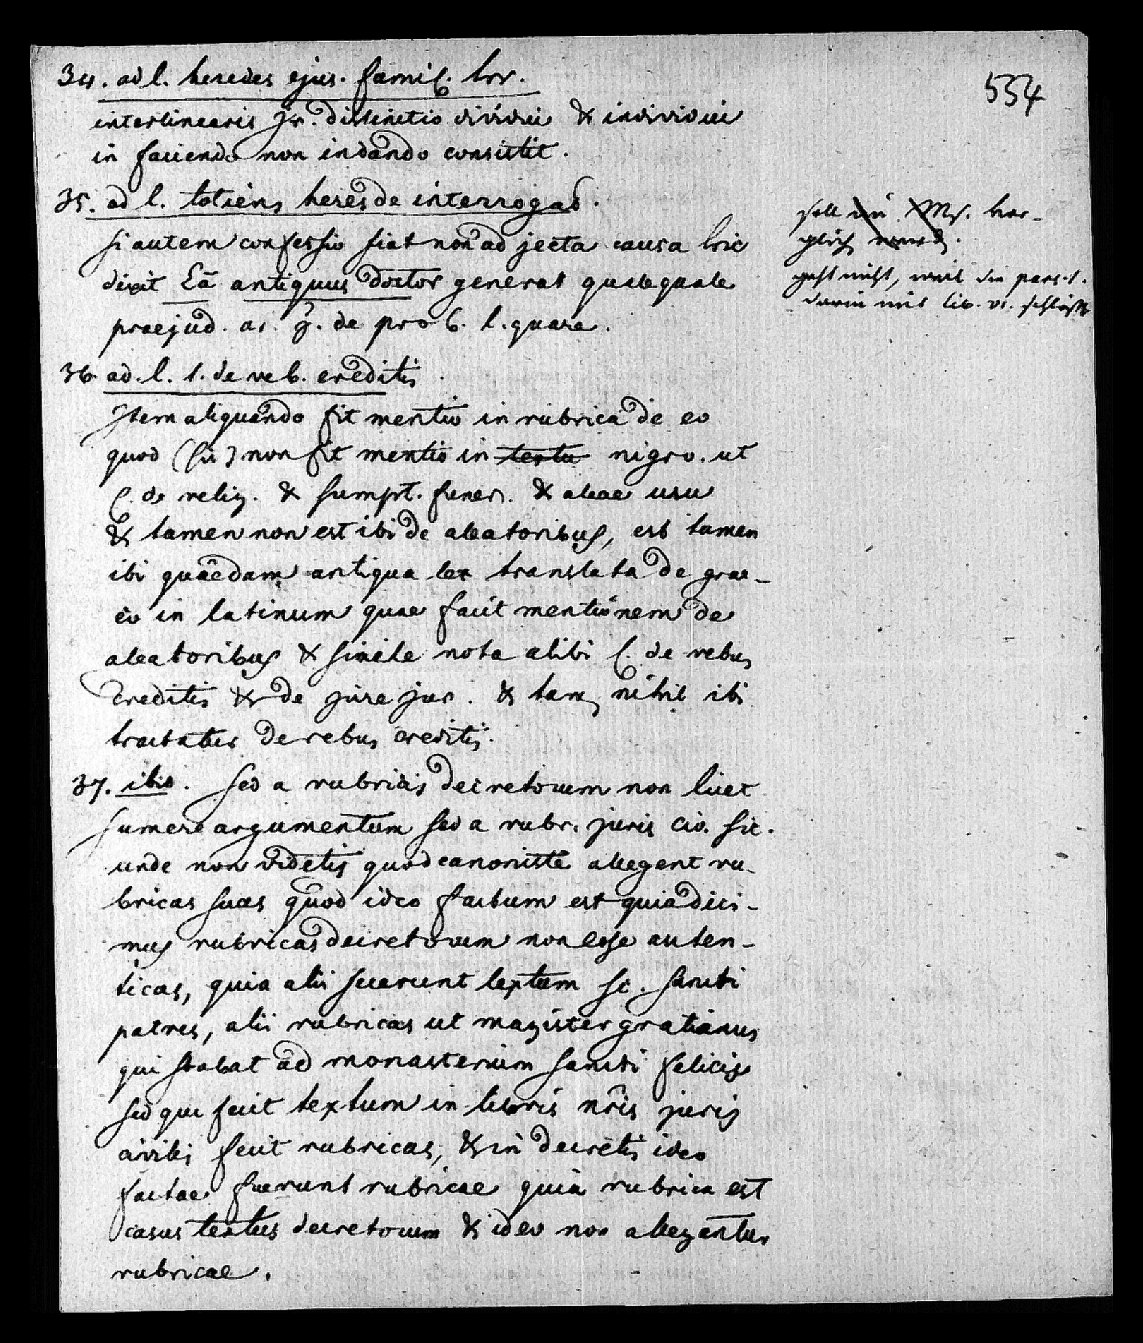 534
34. ad l. heredes ejus. famil. hrr.
interlinearis Jr. distinctio dividui & individui
in faciendo non in dando consistit.
35. ad l. totiens heres de interrogad.
si autem confessio fiat non adjecta causa hic
dixit Eã antiquus doctor generat qualequale
praejud. ar. ff. de pro b. l. quare.
soll im Ms. ver-
glich werd.
geht nicht, weil die pars 1.
darin mit lib. VI. schließt
36. ad. l. 1. de reb. creditis
Item aliquando fit mentio in rubrica de eo
quod (sic) non fit mentio in textu nigro. ut
C. de relig. & sumpt. funer. & aleae usu
& tamen non est ibi de aleatoribus, est tamen
ibi quaedam antiqua lex translata de grae-
co in latinum quae facit mentionem de
aleatoribus & simile nota alibi C. de rebus
creditis & de jure jur. & tam, nihil ibi
tractatur de rebus creditis.
37. ibid. sed a rubricis decretorum non licet
sumere argumentum sed a rubr. juris civ. sic.
unde non videtis quod canonistae allegent ru-
bricas suas quod ideo factum est quia dici-
mus rubricas decretorum non esse auten-
ticas, quia alii fecerunt textum sc. sancti
patres, alii rubricas ut magister gratianus
qui stabat ad monasterium sancti felicis
sed qui fecit textum in libris nris juris
civilis fecit rubricas, & in decretis ideo
factae fuerunt rubricae quia rubrica est
casus textus decretorum & ideo non allegantur
rubricae.